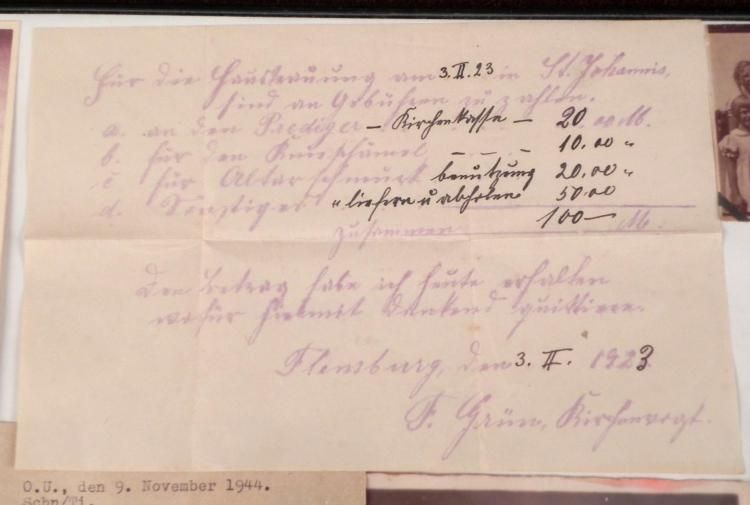 Für die Haustrauung am 3. II. 23 in St. Johannis,
sind an Gebühren zu zahlen.
a. an den Prediger – Kirchenkasse – 20.00 M.
b. für den Knieschämel – – – 10.00 "
c für Altarschmuck benutzung 20.00 "
d. Sonstiges " liefern u abholen 50.00
zusammen 100 — M.
Den Betrag habe ich heute erhalten
wofür hiermit dankend quittiere.
Flensburg, den 3. II. 1923
F. Grün, Kirchenvogt.
O.U., den 9. November 1944.
Schn/Ti.